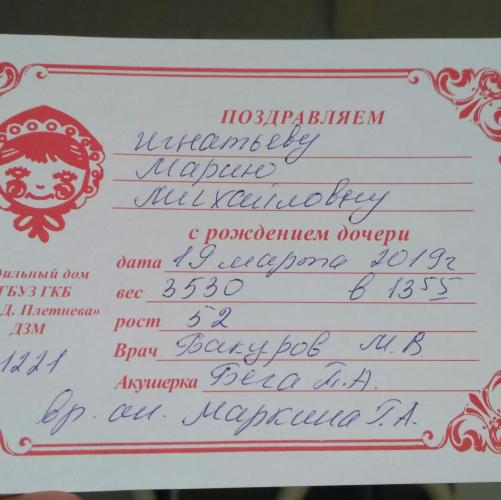 ПОЗДРАВЛЯЕМ
Игнатьеву
Марию
Михайловну
с рождением дочери
дата 19 марта 2019г
вес 3530 в 13 55
рост 52
Врач Бакуров М.В.
Акушерка Бега Т.А.
вр. ан. Маркина Г.А.
дильный дом
ГБУЗ ГКБ
Д. Плетнева»
ДЗМ
1221